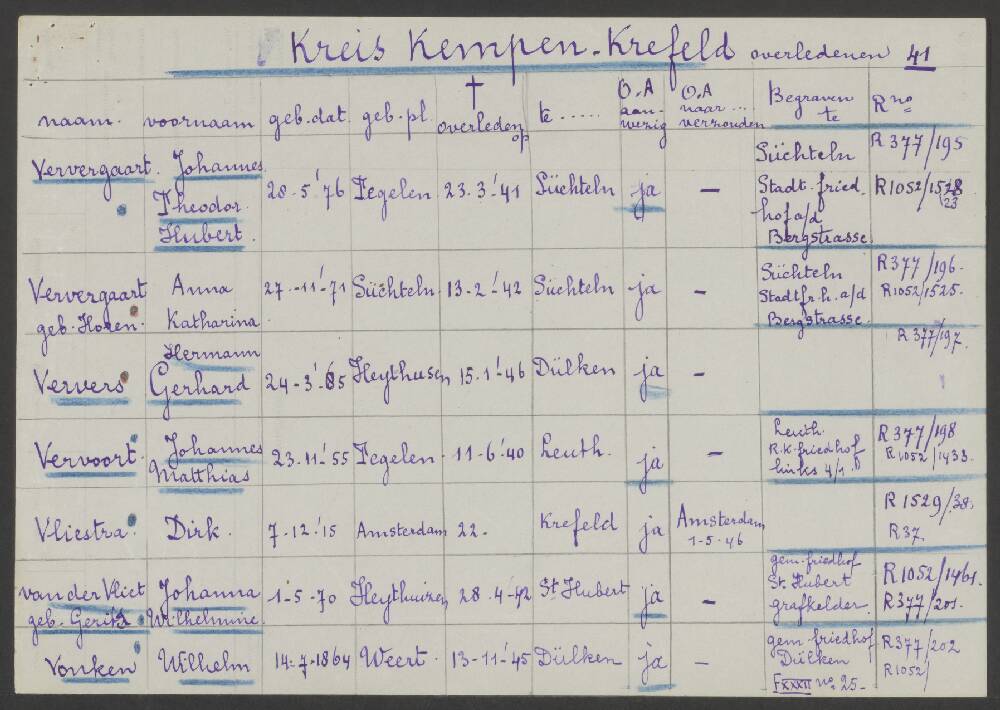 Kreis Kempen-Krefeld overledenen 41
naam. voornaam geb.dat. geb.pl. † overleden op te ...... O.A aan-wezig O.A naar ... verzonden Begraven te R no
Ververgaart. Johannes Theodor Hubert. 28-5-'76 Tegelen 23.3-'41 Süchteln ja — Süchteln Stadt.fried-hof a/d Bergstrasse. R377/195 R1052/1528 23
Ververgaart geb. Anna Katharina 27-11-'71 Süchteln 13-2-'42 Süchteln ja — Süchteln Stadtfr.h. a/d Bergstrasse. R377/196. R1052/1525.
Ververs Hermann Gerhard 24-3-'85 Heythusen 15.1-'46 Dülken ja — R377/197.
Vervoort. Johannes Matthias 23.11-'55 Tegelen. 11-6-'40 Leuth. ja — Leuth. R.K. friedhof links 4/1. R377/198 R1052/1433.
Vliestra. Dirk. 7-12.'15 Amsterdam 22. Krefeld ja Amsterdam 1-5-46 R1529/38. R37.
van der Vliet geb. Johanna Wilhelmine. 1-5-70 Heythuizen 28.4-'42 St Hubert ja — gem. friedhof St. Hubert grafkelder. R1052/1461. R377/201.
Vonken Wilhelm 14-7-1864 Weert. 13-11-'45 Dülken ja — gem. friedhof Dülken F XXXII no. 25- R377/202 R1052/